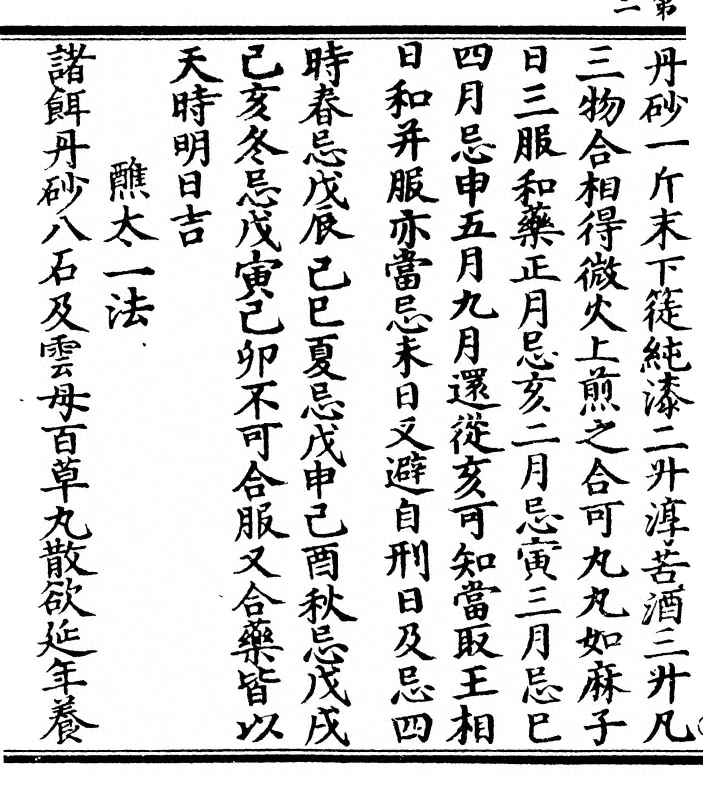 第二
丹砂一斤末下簁純漆二升淳苦酒三升凡
三物合相得微火上煎之合可丸丸如麻子
日三服和藥正月忌亥二月忌寅三月忌巳
四月忌申五月九月還從亥可知當取王相
日和并服亦當忌未日又避自刑日及忌四
時春忌戊辰己巳夏忌戊申己酉秋忌戊戌
己亥冬忌戊寅己卯不可合服又合藥皆以
天時明日吉
醮太一法
諸餌丹砂八石及雲母百草丸散欲延年養